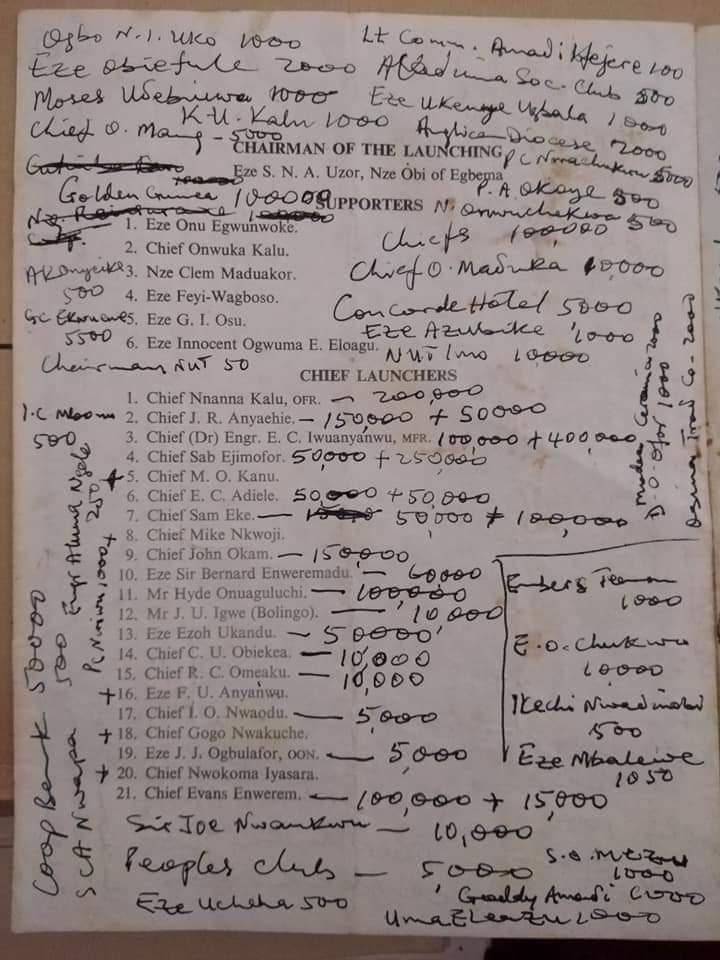 Ogbo N.I. Uko 1000
Lt Comm. Amadi Ikejere 100
Eze Obiefule 2000
Soc. Club 500
Moses 1000
Eze Ukenaye Ugbala 1000
K.U. Kalu 1000
Chief O. Mang - 5000
Anglican Diocese 2000
CHAIRMAN OF THE LAUNCHING
P C Nwachukwu 5000
Eze S. N. A. Uzor, Nze Obi of Egbema
P. A. Okoye 500
Golden Guinea 100000
SUPPORTERS
N. Onwuchekwa 500
1. Eze Onu Egwunwoke.
Chiefs 100,000
2. Chief Onwuka Kalu.
3. Nze Clem Maduakor.
Chief O. Maduka 10,000
500
4. Eze Feyi-Wagboso.
Concorde Hotel 5000
5. Eze G. I. Osu.
5500
Eze Azubike 1000
6. Eze Innocent Ogwuma E. Eloagu.
NUT Imo 10,000
Chairman NUT 50
CHIEF LAUNCHERS
1. Chief Nnanna Kalu, OFR. — 200,000
2. Chief J. R. Anyaehie. — 150,000 + 50000
3. Chief (Dr) Engr. E. C. Iwuanyanwu, MFR. 100,000 + 400,000
4. Chief Sab Ejimofor. 50,000 + 250,000
+ 5. Chief M. O. Kanu.
6. Chief E. C. Adiele. 50,000 + 50,000
7. Chief Sam Eke. — 50,000 + 100,000
+ 8. Chief Mike Nkwoji.
9. Chief John Okam. — 150,000
10. Eze Sir Bernard Enweremadu. — 60000
11. Mr Hyde Onuaguluchi. — 100,000
12. Mr J. U. Igwe (Bolingo). — 10,000
13. Eze Ezoh Ukandu. — 50000
14. Chief C. U. Obiekea. — 10,000
15. Chief R. C. Omeaku. — 10,000
+ 16. Eze F. U. Anyanwu.
17. Chief I. O. Nwaodu. — 5,000
+ 18. Chief Gogo Nwakuche.
19. Eze J. J. Ogbulafor, OON. — 5,000
+ 20. Chief Nwokoma Iyasara.
21. Chief Evans Enwerem. — 100,000 + 15,000
Sir Joe Nwankwo — 10,000
Peoples Club — 5000
1000
Eze Ucheha 500
Amadi 1000
1000
500
250
Coop Bank 50000
SCA Nwapa 500
1000
E.O. Chukwu
10000
Ikechi Nwadinobi
500
Eze Mbalewe
1050
Ceramic 2000
D.O. Ofor 1000
Trad Co - 2000